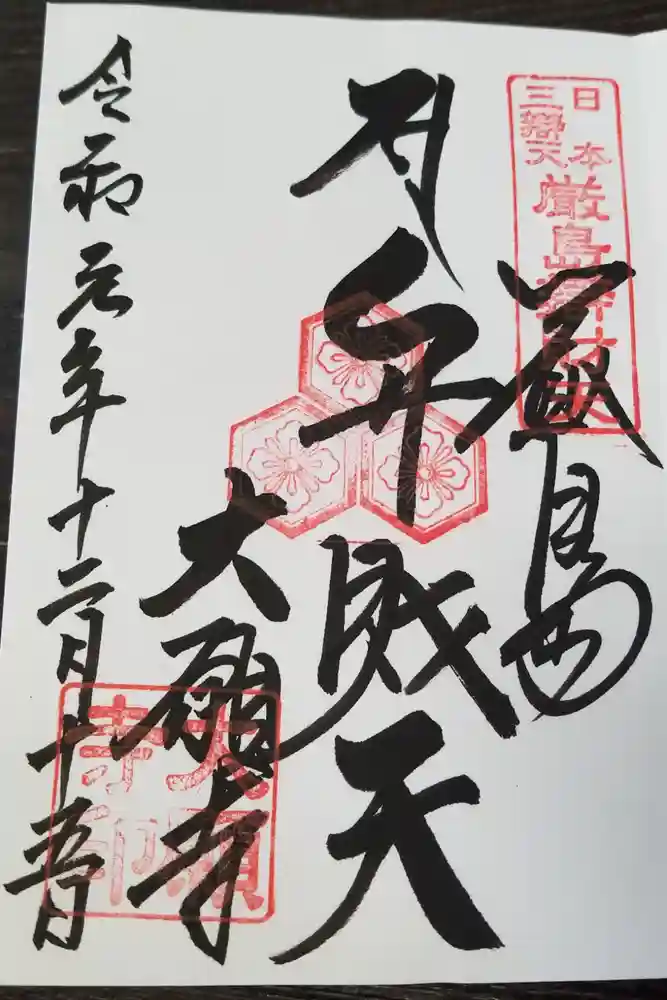 日本
三辨天
厳島辨財天
厳島
弁財天
大願寺
大願
寺印
令和元年十二月十五日